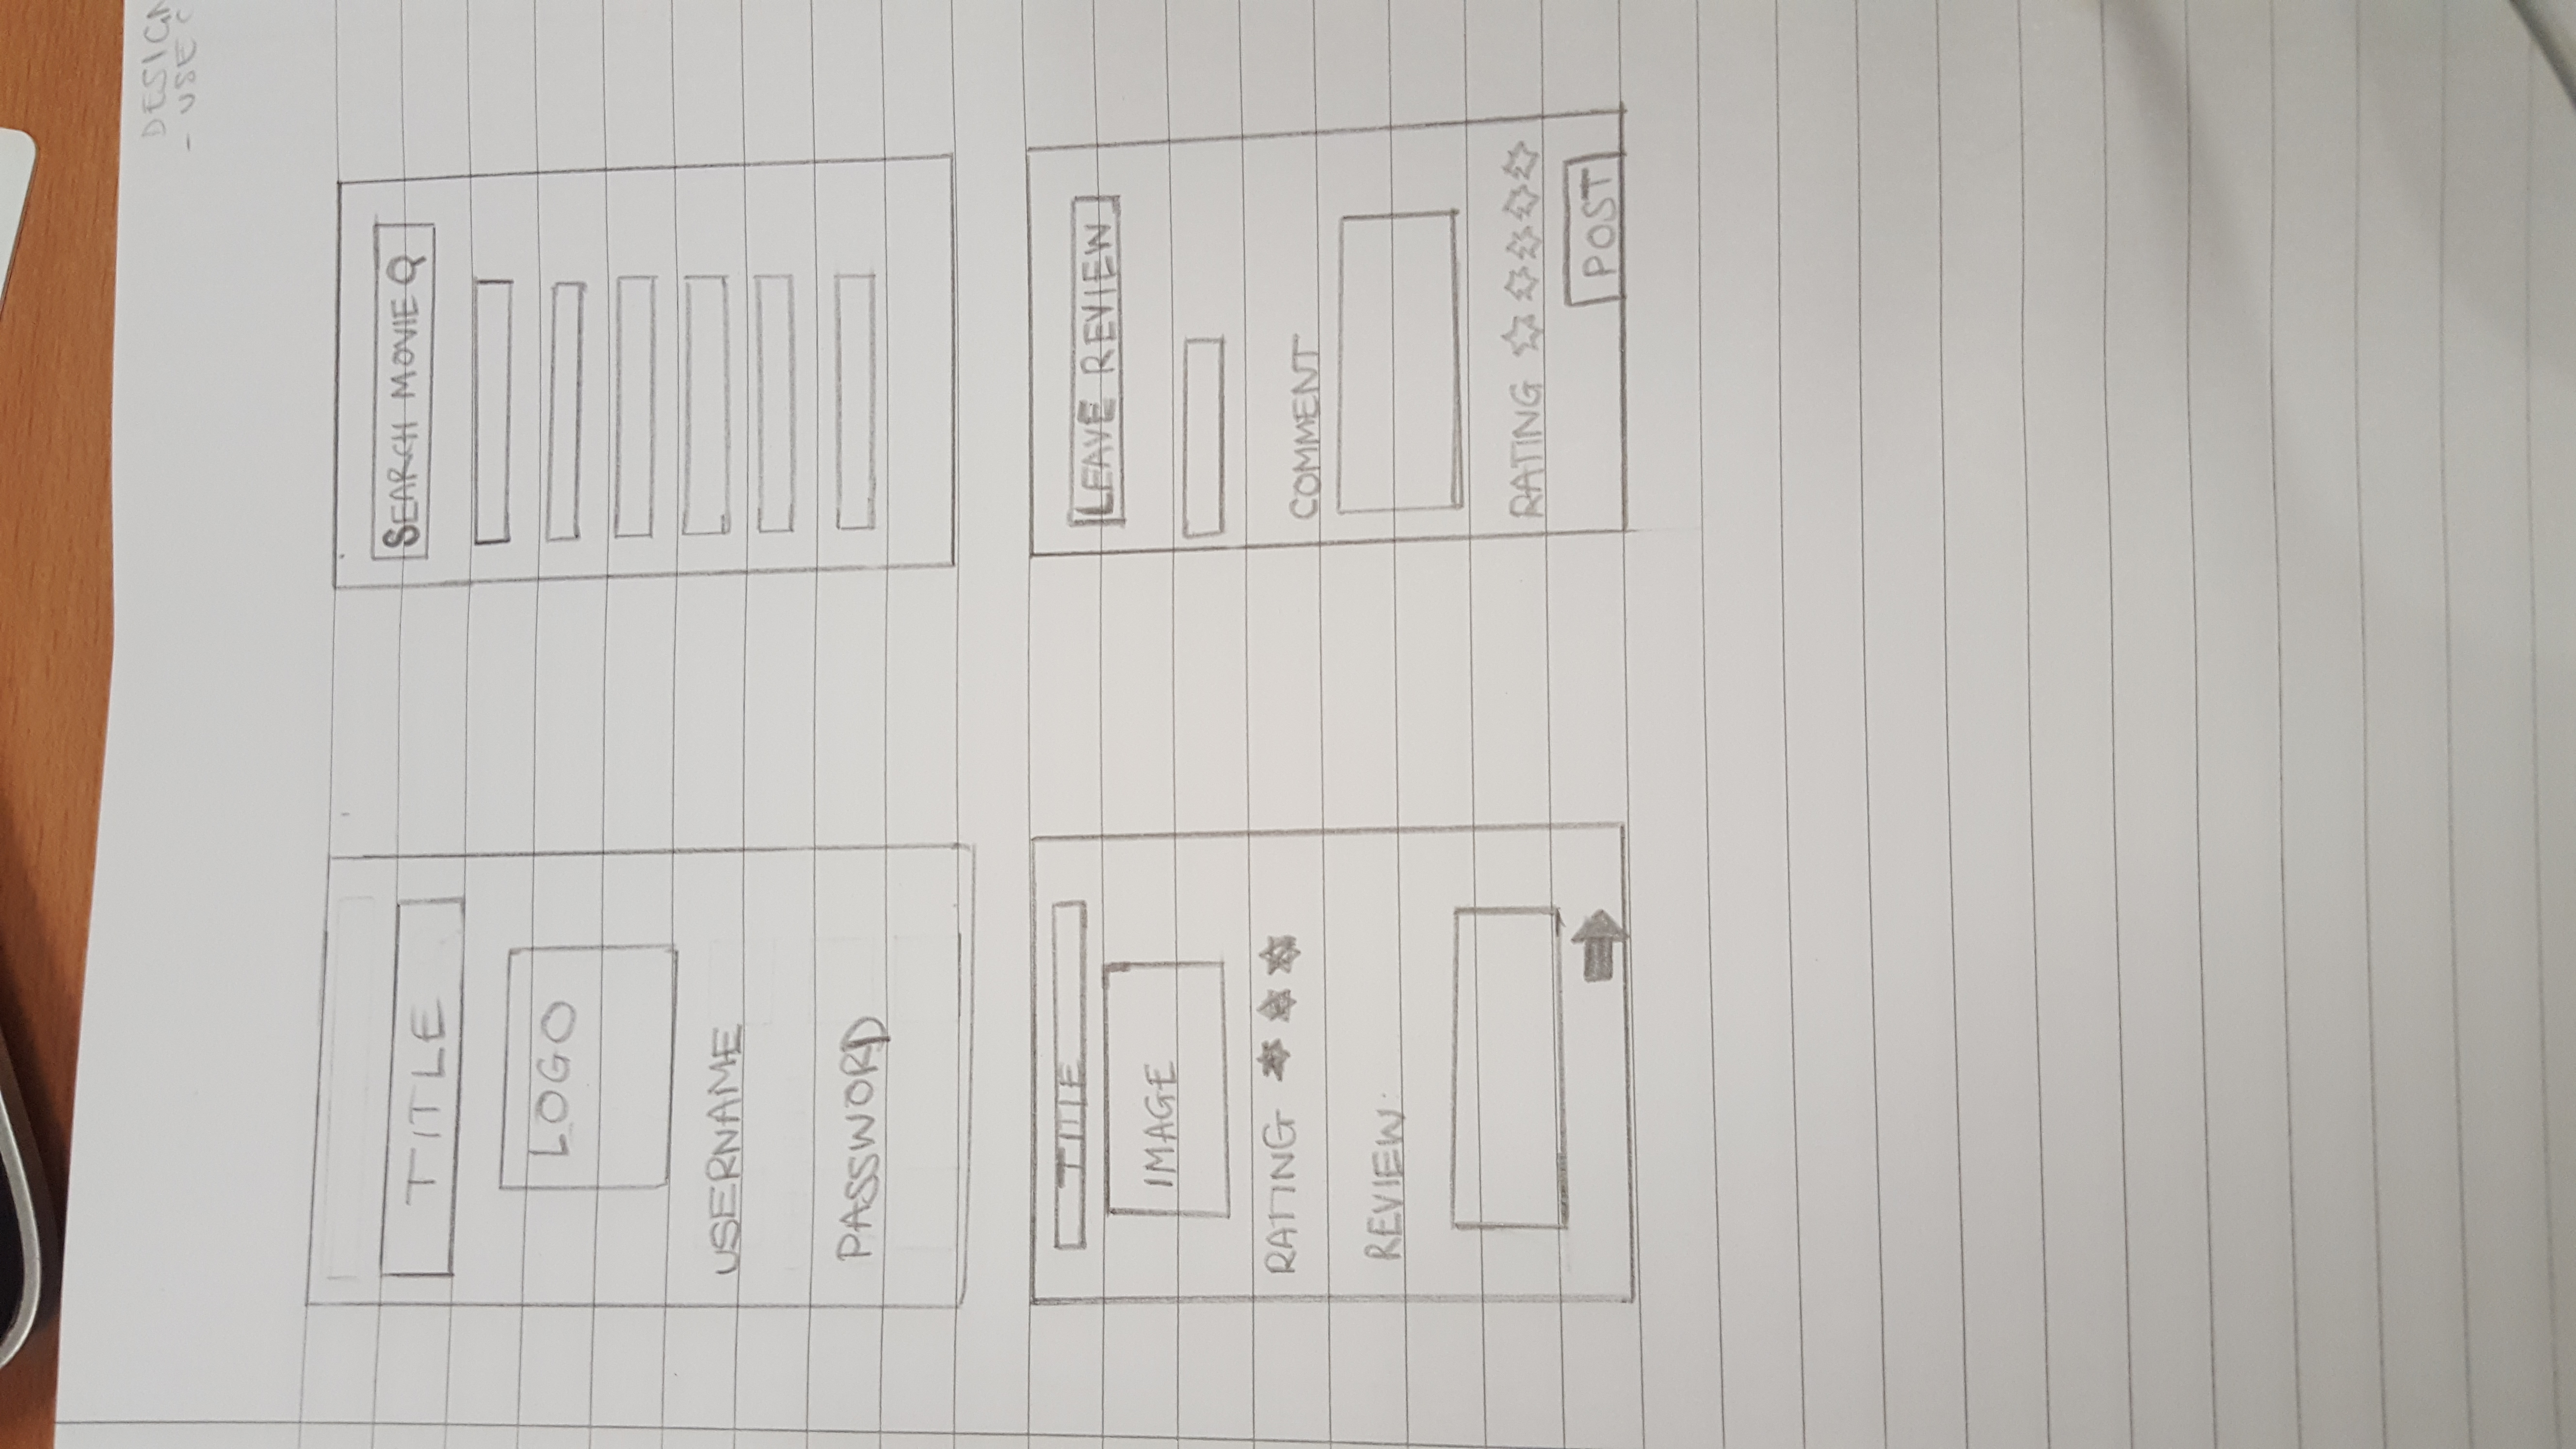 DESIGN
- USE
TITLE
LOGO
USERNAME
PASSWORD
SEARCH MOVIE
TITLE
IMAGE
RATING
REVIEW:
LEAVE REVIEW
COMMENT
RATING
POST